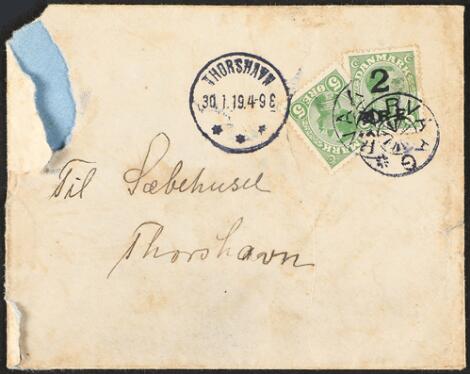 THORSHAVN
30.1.19.4-9 E
5 ØRE 5
DANMARK
2
ØRE
Til Sæbehuset
Thorshavn